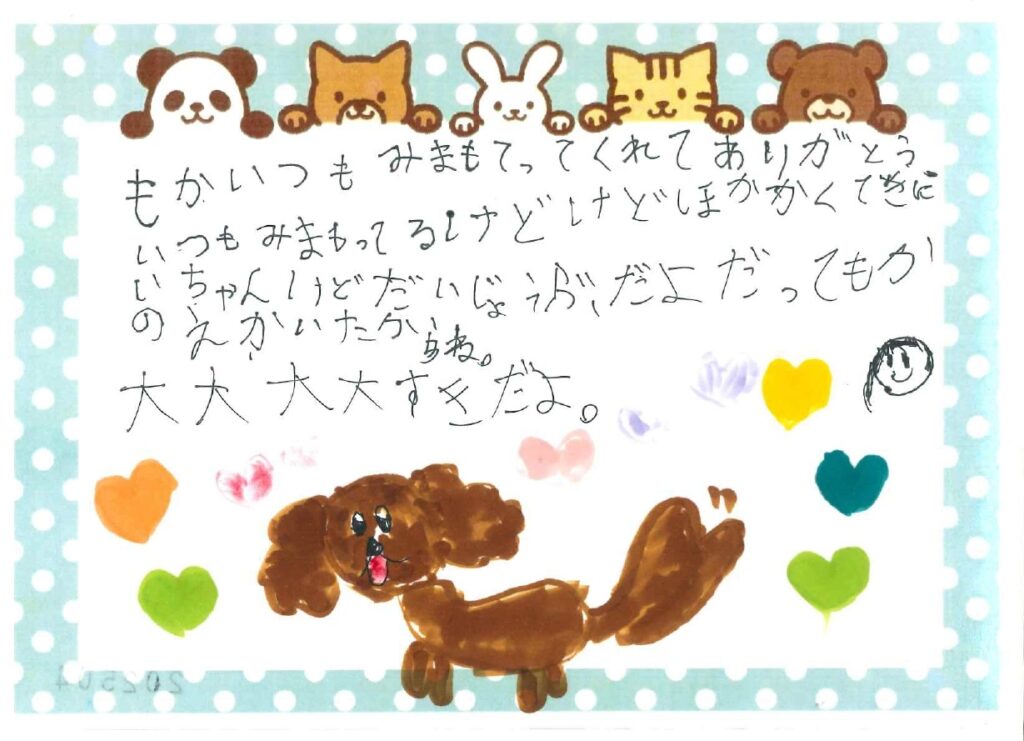 もかいつも みまもてってくれて ありがとう
いつもみまもってるけどけどほかかくてきに
いちゃんけどだいじょうぶだよだってもか
のえかいたから
らね。
大大大大すきだよ。
202504